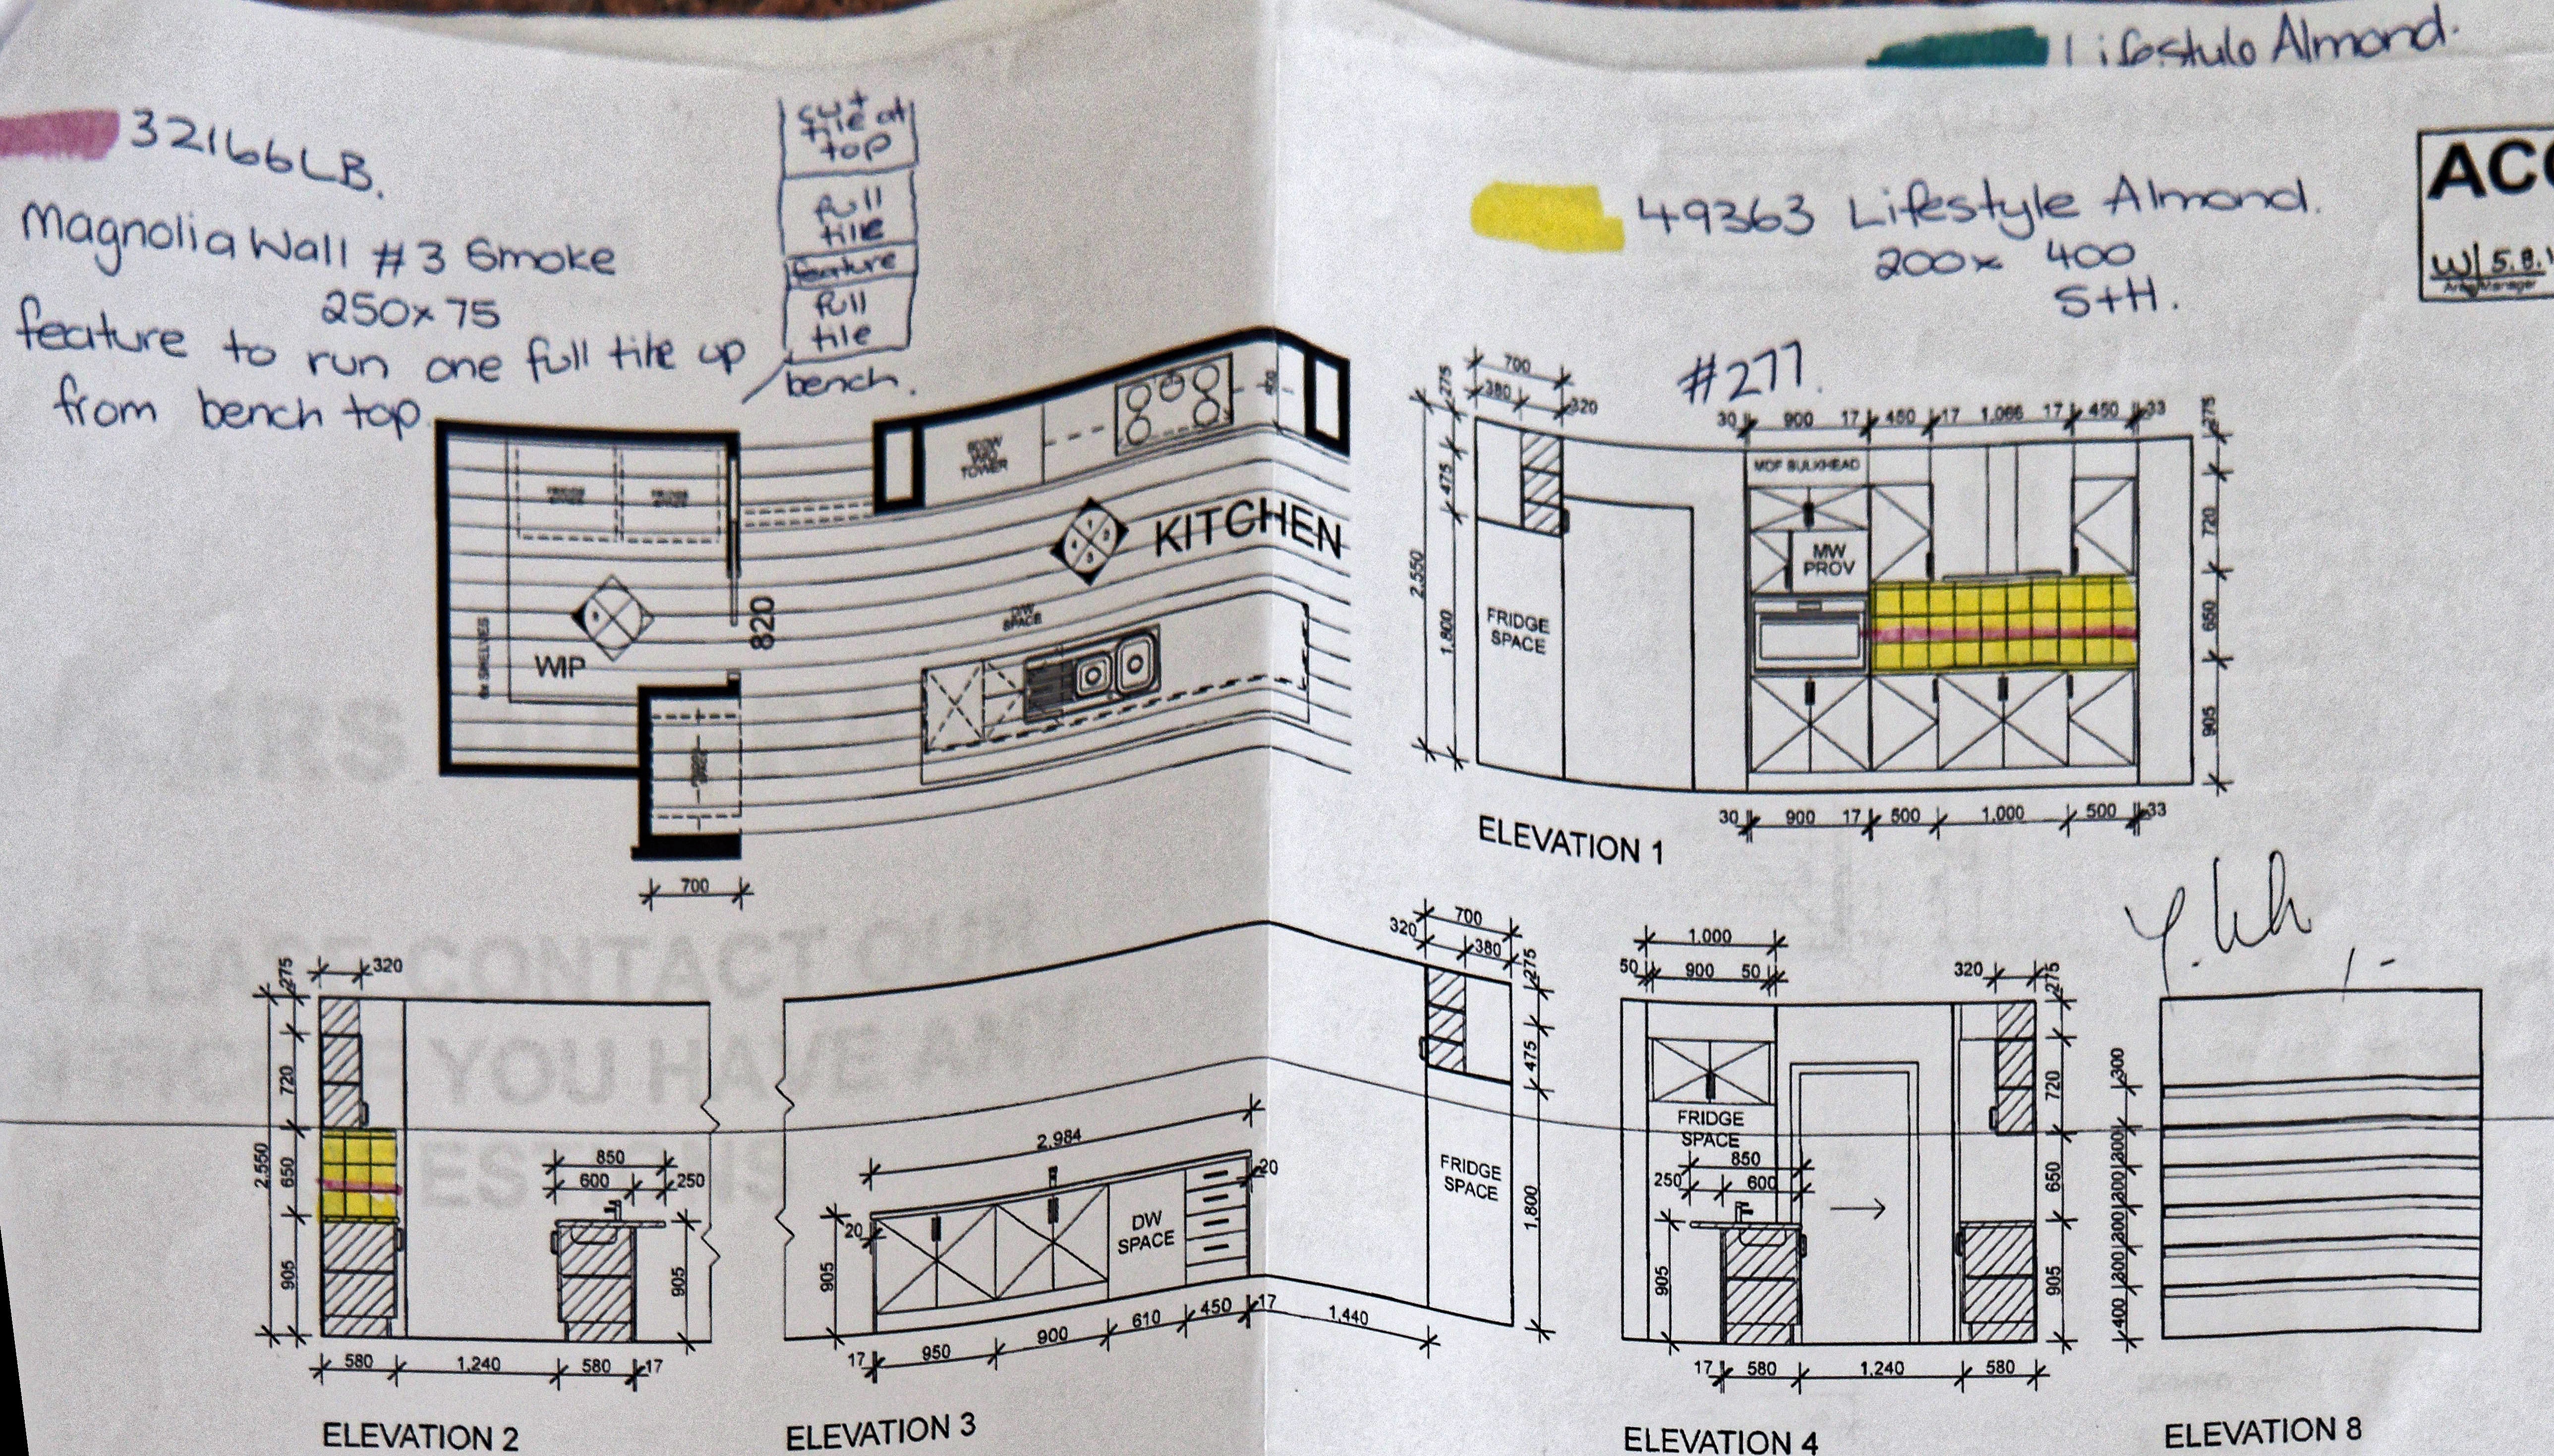 Lifestyle Almond.
32166LB.
Magnolia Wall #3 Smoke
250x75
feature to run one full tile up
from bench top.
cut
tile at
top
full
tile
feature
full
tile
bench.
49363 Lifestyle Almond.
200x 400
S+H.
#277.
W/ 5.8.1
Area Manager
TOWER
KITCHEN
DW
SPACE
820
WIP
SHELVES
700
700
380
320
275
475
2,550
1,800
30 900 17 450 17 1,066 17 450 33
275
720
650
905
MDF BULKHEAD
MW
PROV
FRIDGE
SPACE
30 900 17 500 1,000 500 33
ELEVATION 1
320
275
720
2,550
650
905
850
600
250
905
580 1,240 580 17
ELEVATION 2
2,984
20
20
905
DW
SPACE
17 950 900 610 450 17 1,440
700
320
380
275
475
1,800
FRIDGE
SPACE
ELEVATION 3
1,000
50 900 50
320
275
720
650
905
FRIDGE
SPACE
850
250 600
905
17 580 1,240 580
ELEVATION 4
300
300
300
300
300
300
400
ELEVATION 8
PLEASE CONTACT OUR
YOU HAVE ANY